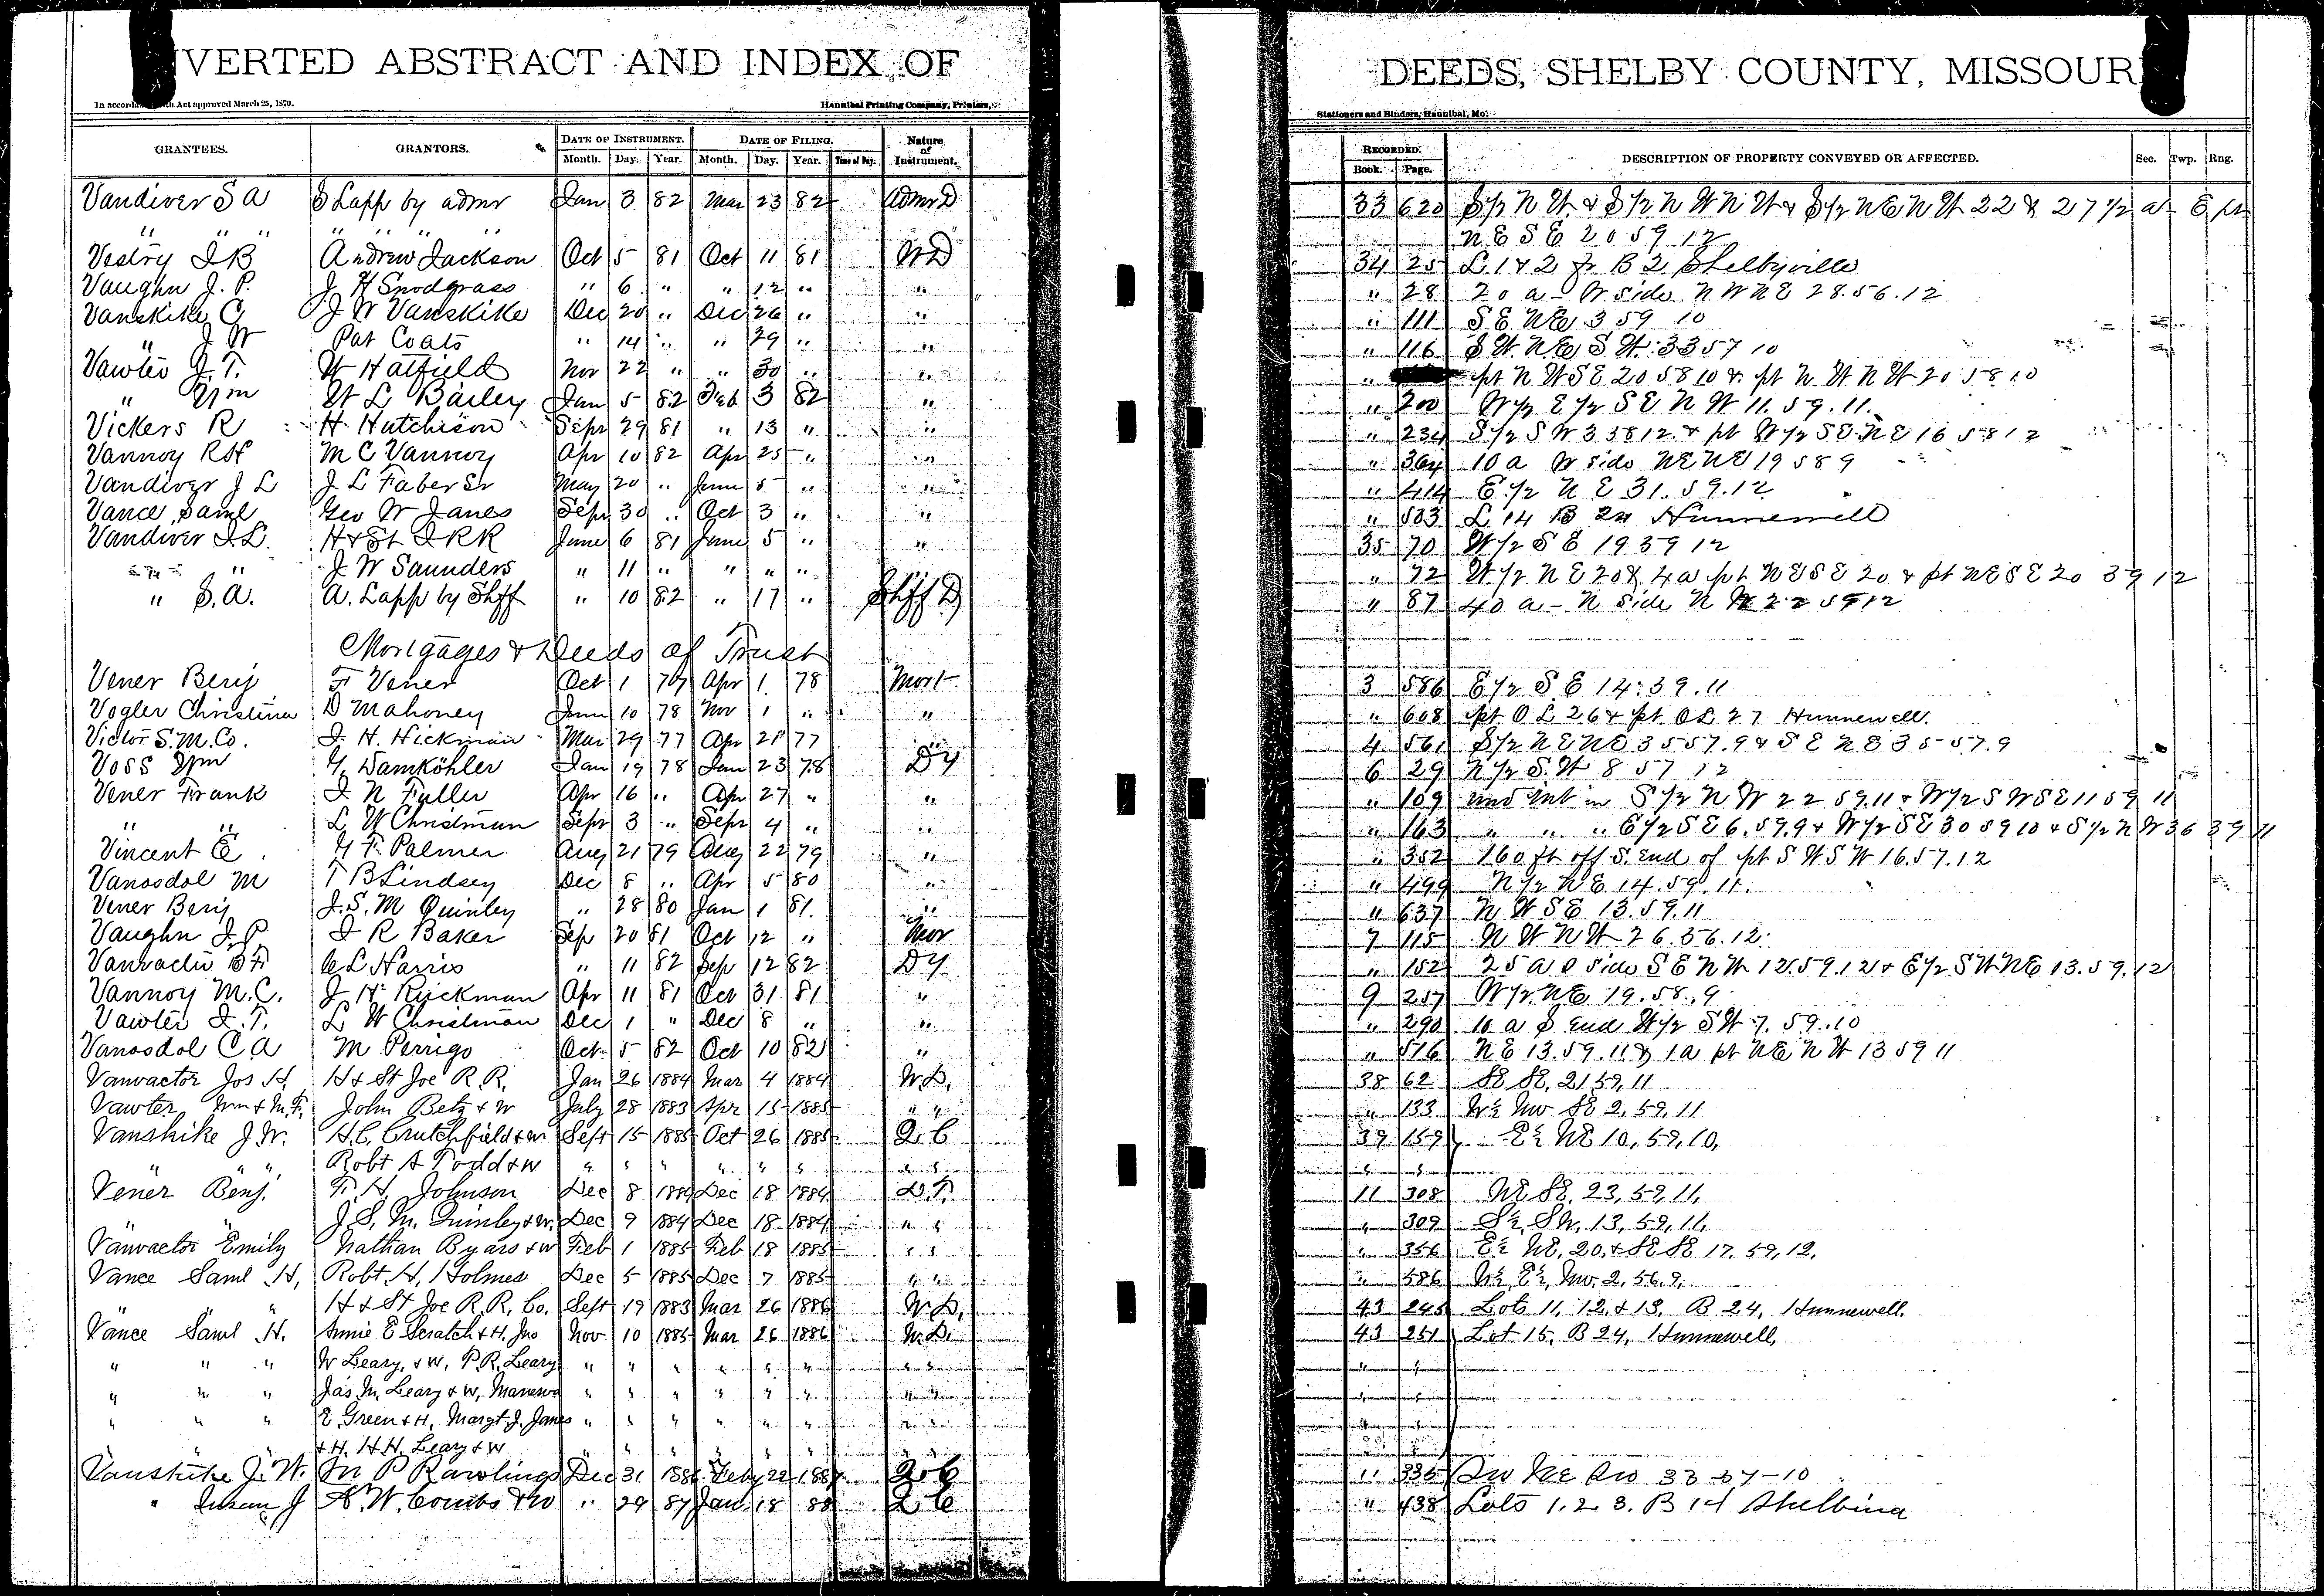 VERTED ABSTRACT AND INDEX OF DEEDS, SHELBY COUNTY, MISSOUR
In accorda Act approved March 25, 1870. Hannibal Printing Company, Printers, Stationers and Binders, Hannibal, Mo.
GRANTEES. GRANTORS. DATE OF INSTRUMENT. DATE OF FILING. Nature of Instrument. RECORDED. DESCRIPTION OF PROPERTY CONVEYED OR AFFECTED. Sec. Twp. Rng.
Month. Day. Year. Month. Day. Year. Time of Day. Book. Page.
Vandiver S A S Lapp by admr Jan 3 82 Mar 23 82 Admr D 33 620 S 1/2 N W & S 1/2 N W N W & S 1/2 N E N W 22 & 27 1/2 a E pt
" " " " " " N E S E 20 59 12
Vestry I B Andrew Jackson Oct 5 81 Oct 11 81 W D 34 25 L 1 & 2 B 2 Shelbyville
Vaughn J. P. J H Snodgrass " 6 " " 12 " " " 28 20 a - W side N W N E 28.56.12
Vanskike C J W Vanskike Dec 20 " Dec 26 " " " 111 S E N E 3 59 10
" J W Pat Coats " 14 " " 29 " " " 116 S W. N E S W. 33 57 10
Vawter J. T. W Hatfield Nov 22 " " 30 " " " pt N W S E 20 58 10 & pt N. W N W 20 58 10
" Wm W L Bailey Jan 5 82 Feb 3 82 " " 200 W 1/2 E 1/2 S E N W 11. 59. 11.
Vickers R H Hutchison Sept 29 81 " 13 " " " 234 S 1/2 S W 3 58 12 & pt W 1/2 S E N E 16 58 12
Vannoy R H M C Vannoy Apr 10 82 Apr 25 " " " 364 10 a W side N E N E 19 58 9
Vandiver J L J L Faber Sr May 20 " June 5 " " " 414 E 1/2 N E 31. 59. 12
Vance Saml Geo W Janes Sept 30 " Oct 3 " " " 583 L 14 B 24 Hunnewell
Vandiver I. L. H & St J R R June 6 81 June 5 " " 35 70 W 1/2 S E 19 59 12
" " J W Saunders " 11 " " " " " 72 W 1/2 N E 20 & 4 a pt N E S E 20 & pt N E S E 20 59 12
" S. A. A. Lapp by Shff " 10 82 " 17 " Shff D " 87 40 a - N side N W 22 59 12
Mortgages & Deeds of Trust
Vener Benj F Vener Oct 1 77 Apr 1 78 Mort 3 586 E 1/2 S E 14. 59. 11
Vogler Christina D Mahoney June 10 78 Nov 1 " " " 608 pt O L 26 & pt O L 27 Hunnewell.
Victor S. M. Co. J. H. Hickman Mar 29 77 Apr 21 77 " 4 561 S 1/2 N E N E 35 57. 9 & S E N E 35-57. 9
Voss Wm G. Damköhler Jan 19 78 Jan 23 78 D T 6 29 N 1/2 S. W 8 57 12
Vener Frank J N Fuller Apr 16 " Apr 27 " " " 109 und int in S 1/2 N W 22 59. 11 & W 1/2 S W S E 11 59 11
" " L W Christman Sept 3 " Sept 4 " " " 163 " " " E 1/2 S E 6. 59. 9 & W 1/2 S E 30 59 10 & S 1/2 N W 36 59 11
Vincent E. G F. Palmer Aug 21 79 Aug 22 79 " " 352 160 ft off S. End of pt S W S W 16. 57. 12
Vanosdol M T B Lindsey Dec 8 " Apr 5 80 " " 499 N 1/2 N E 14. 59. 11.
Vener Benj J. S. M Quinley " 28 80 Jan 1 81 " " 637 N W S E 13. 59. 11
Vaughn J. P. J R Baker Sep 20 81 Oct 12 " Mor 7 115 N W N W 26. 56. 12.
Vanvactu B F. C L Harris " 11 82 Sep 12 82 D T " 152 25 a side S E N W 12. 59. 12 & E 1/2 S W N E 13. 59. 12
Vannoy M. C. J H Ruckman Apr 11 81 Oct 31 81 " 9 257 W 1/2 N E 19. 58. 9
Vawter J. T. L W Christman Dec 1 " Dec 8 " " " 290 10 a S End W 1/2 S W 7. 59. 10
Vanosdol C A M Perrigo Oct 5 82 Oct 10 82 " " 516 N E 13. 59. 11 & 1 a pt N E N W 13 59 11
Vanvactor Jos H. H & St Joe R. R. Jan 26 1884 Mar 4 1884 W. D. 38 62 SE SE, 21, 59, 11
Vawter Wm & M. F. John Betz & W July 28 1883 Apr 15 1885 " " " 133 W½ NW SE 2, 59, 11
Vanskike J. W. H. C. Crutchfield & W Sept 15 1885 Oct 26 1885 Q. C 39 159 E½ NE 10, 59, 10,
" " Robt A Todd & W " " " " " " " " " "
Vener Benj. F. H. Johnson Dec 8 1884 Dec 18 1884 D. T. 11 308 NE SE. 23, 59, 11,
" " J. S. M. Quinley & W. Dec 9 1884 Dec 18 1884 " " " 309 S½ SW. 13, 59, 11,
Vanvactor Emily Nathan Byars & W Feb 1 1885 Feb 18 1885 " " " 356 E½ NE. 20, & SE SE 17. 59, 12.
Vance Saml H, Robt H, Holmes Dec 5 1885 Dec 7 1885 " " " 586 W½ E½ NW. 2, 56, 9,
" " " H & St Joe R. R. Co. Sept 19 1883 Mar 26 1886 W. D, 43 245 Lots 11, 12, & 13, B 24, Hunnewell.
Vance Saml H. Annie E Scratch & H, Jno Nov 10 1885 Mar 26 1886 W. D. 43 251 Lot 15, B 24, Hunnewell,
" " " W Leary, & W, P. R. Leary " " " " " " " " " "
" " " Jas M. Leary & W, " " " " " " " " " "
" " " E. Green & H, Margt J. Janes " " " " " " " " " "
" " " & H, H H, Leary & W " " " " " " " "
Vanskike J. W. M P Rawlings Dec 31 1886 Feby 22 1887 Q C " 335 SW NE SW 33-57-10
" Susan J A. W. Combs & W " 29 87 Jan 18 88 Q C " 438 Lots 1. 2 3. B 14 Shelbina